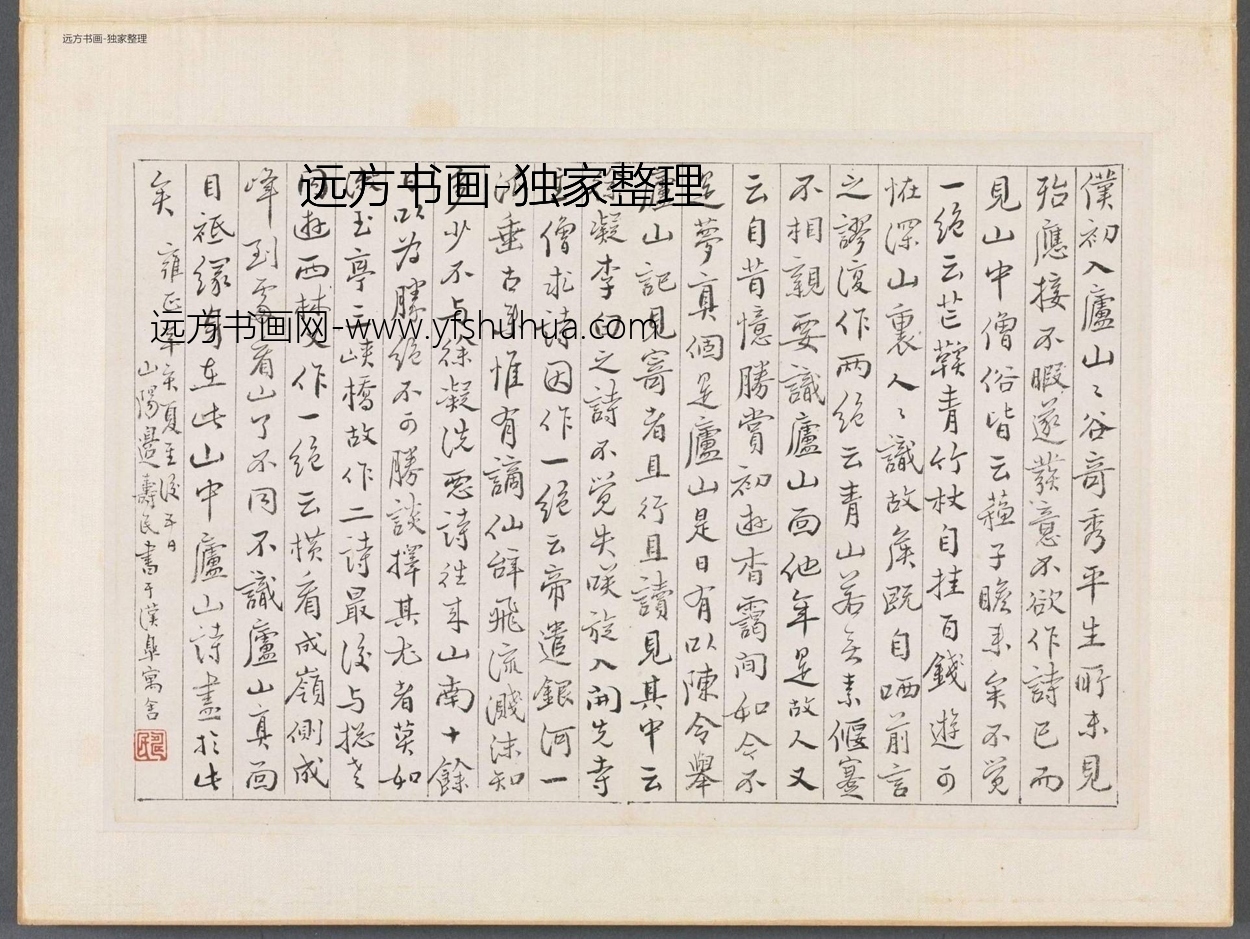 远方书画-独家整理
远方书画-独家整理
远方书画网-www.yfshuhua.com
僕初入廬山〻谷奇秀平生所未見
殆應接不暇遂發意不欲作詩已而
見山中僧俗皆云蘇子瞻來矣不覺
一絕云芒鞵青竹杖自挂百錢遊可
怪深山裏人〻識故矦既自哂前言
之謬復作兩絕云青山若無素偃蹇
不相親要識廬山面他年是故人又
云自昔憶勝賞初遊杳靄間如今不
是夢真個是廬山是日有以陳令舉
廬山記見寄者且行且讀見其中云
徐凝李白之詩不覺失咲旋入開先寺
主僧求詩因作一絕云帝遣銀河一
派垂古來惟有謫仙辭飛流濺沫知
多少不与徐凝洗惡詩往來山南十餘
日以為勝絕不可勝談擇其尤者莫如
漱玉亭三峽橋故作二詩最後与揔老
同遊西林又作一絕云橫看成嶺側成
峰到處看山了不同不識廬山真面
目祗緣身在此山中廬山詩盡於此
矣
雍正年夏至後五日
山陽邊壽民書于漢臯寓舍